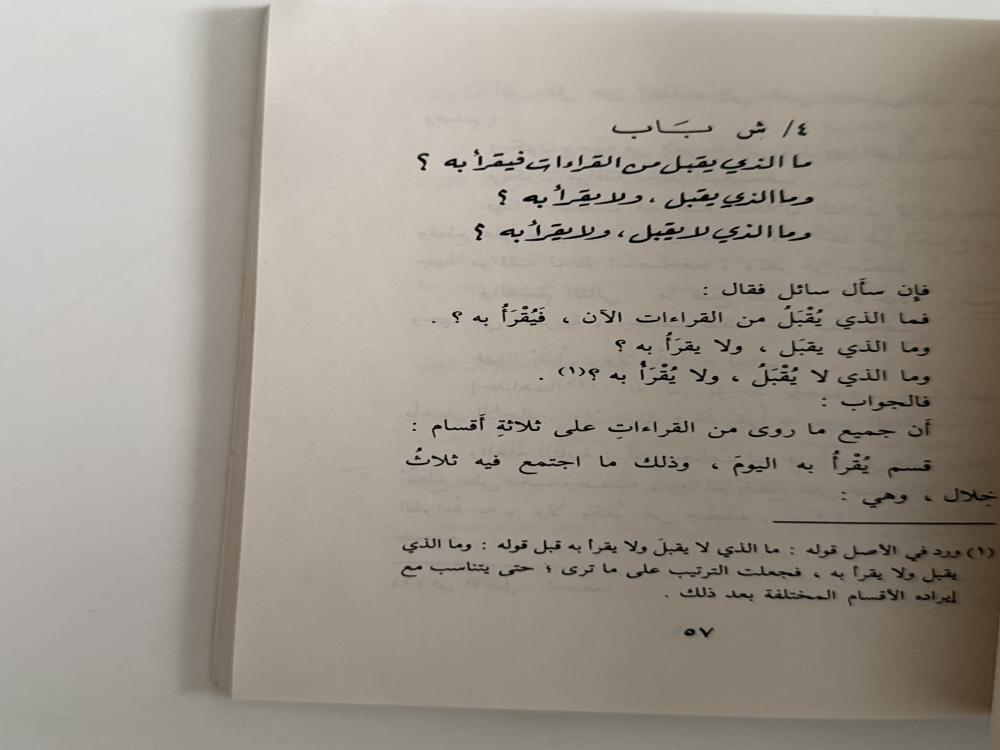 ٤/ ش بَاب
ما الذي يقبل من القراءات فيقرأ به ؟
وما الذي يقبل ، ولا يقرأ به ؟
وما الذي لا يقبل ، ولا يقرأ به ؟
فإن سأَل سائل فقال :
فما الذي يُقْبَلُ من القراءات الآن ، فَيُقْرَأُ به ؟ .
وما الذي يقبَل ، ولا يقرَأُ به ؟
وما الذي لا يُقْبَلُ ، ولا يُقْرَأُ به ؟(١) .
فالجواب :
أَن جميع ما روى من القراءاتِ على ثلاثةِ أَقسام :
قسم يُقْرأُ به اليومَ ، وذلك ما اجتمع فيه ثلاثُ
خِلال ، وهي :
(١) ورد في الأصل قوله : ما الذي لا يقبل ولا يقرأ به قبل قوله : وما الذي
يقبل ولا يقرأ به ، فجعلت الترتيب على ما ترى ؛ حتى يتناسب مع
إيراده الأقسام المختلفة بعد ذلك .
٥٧